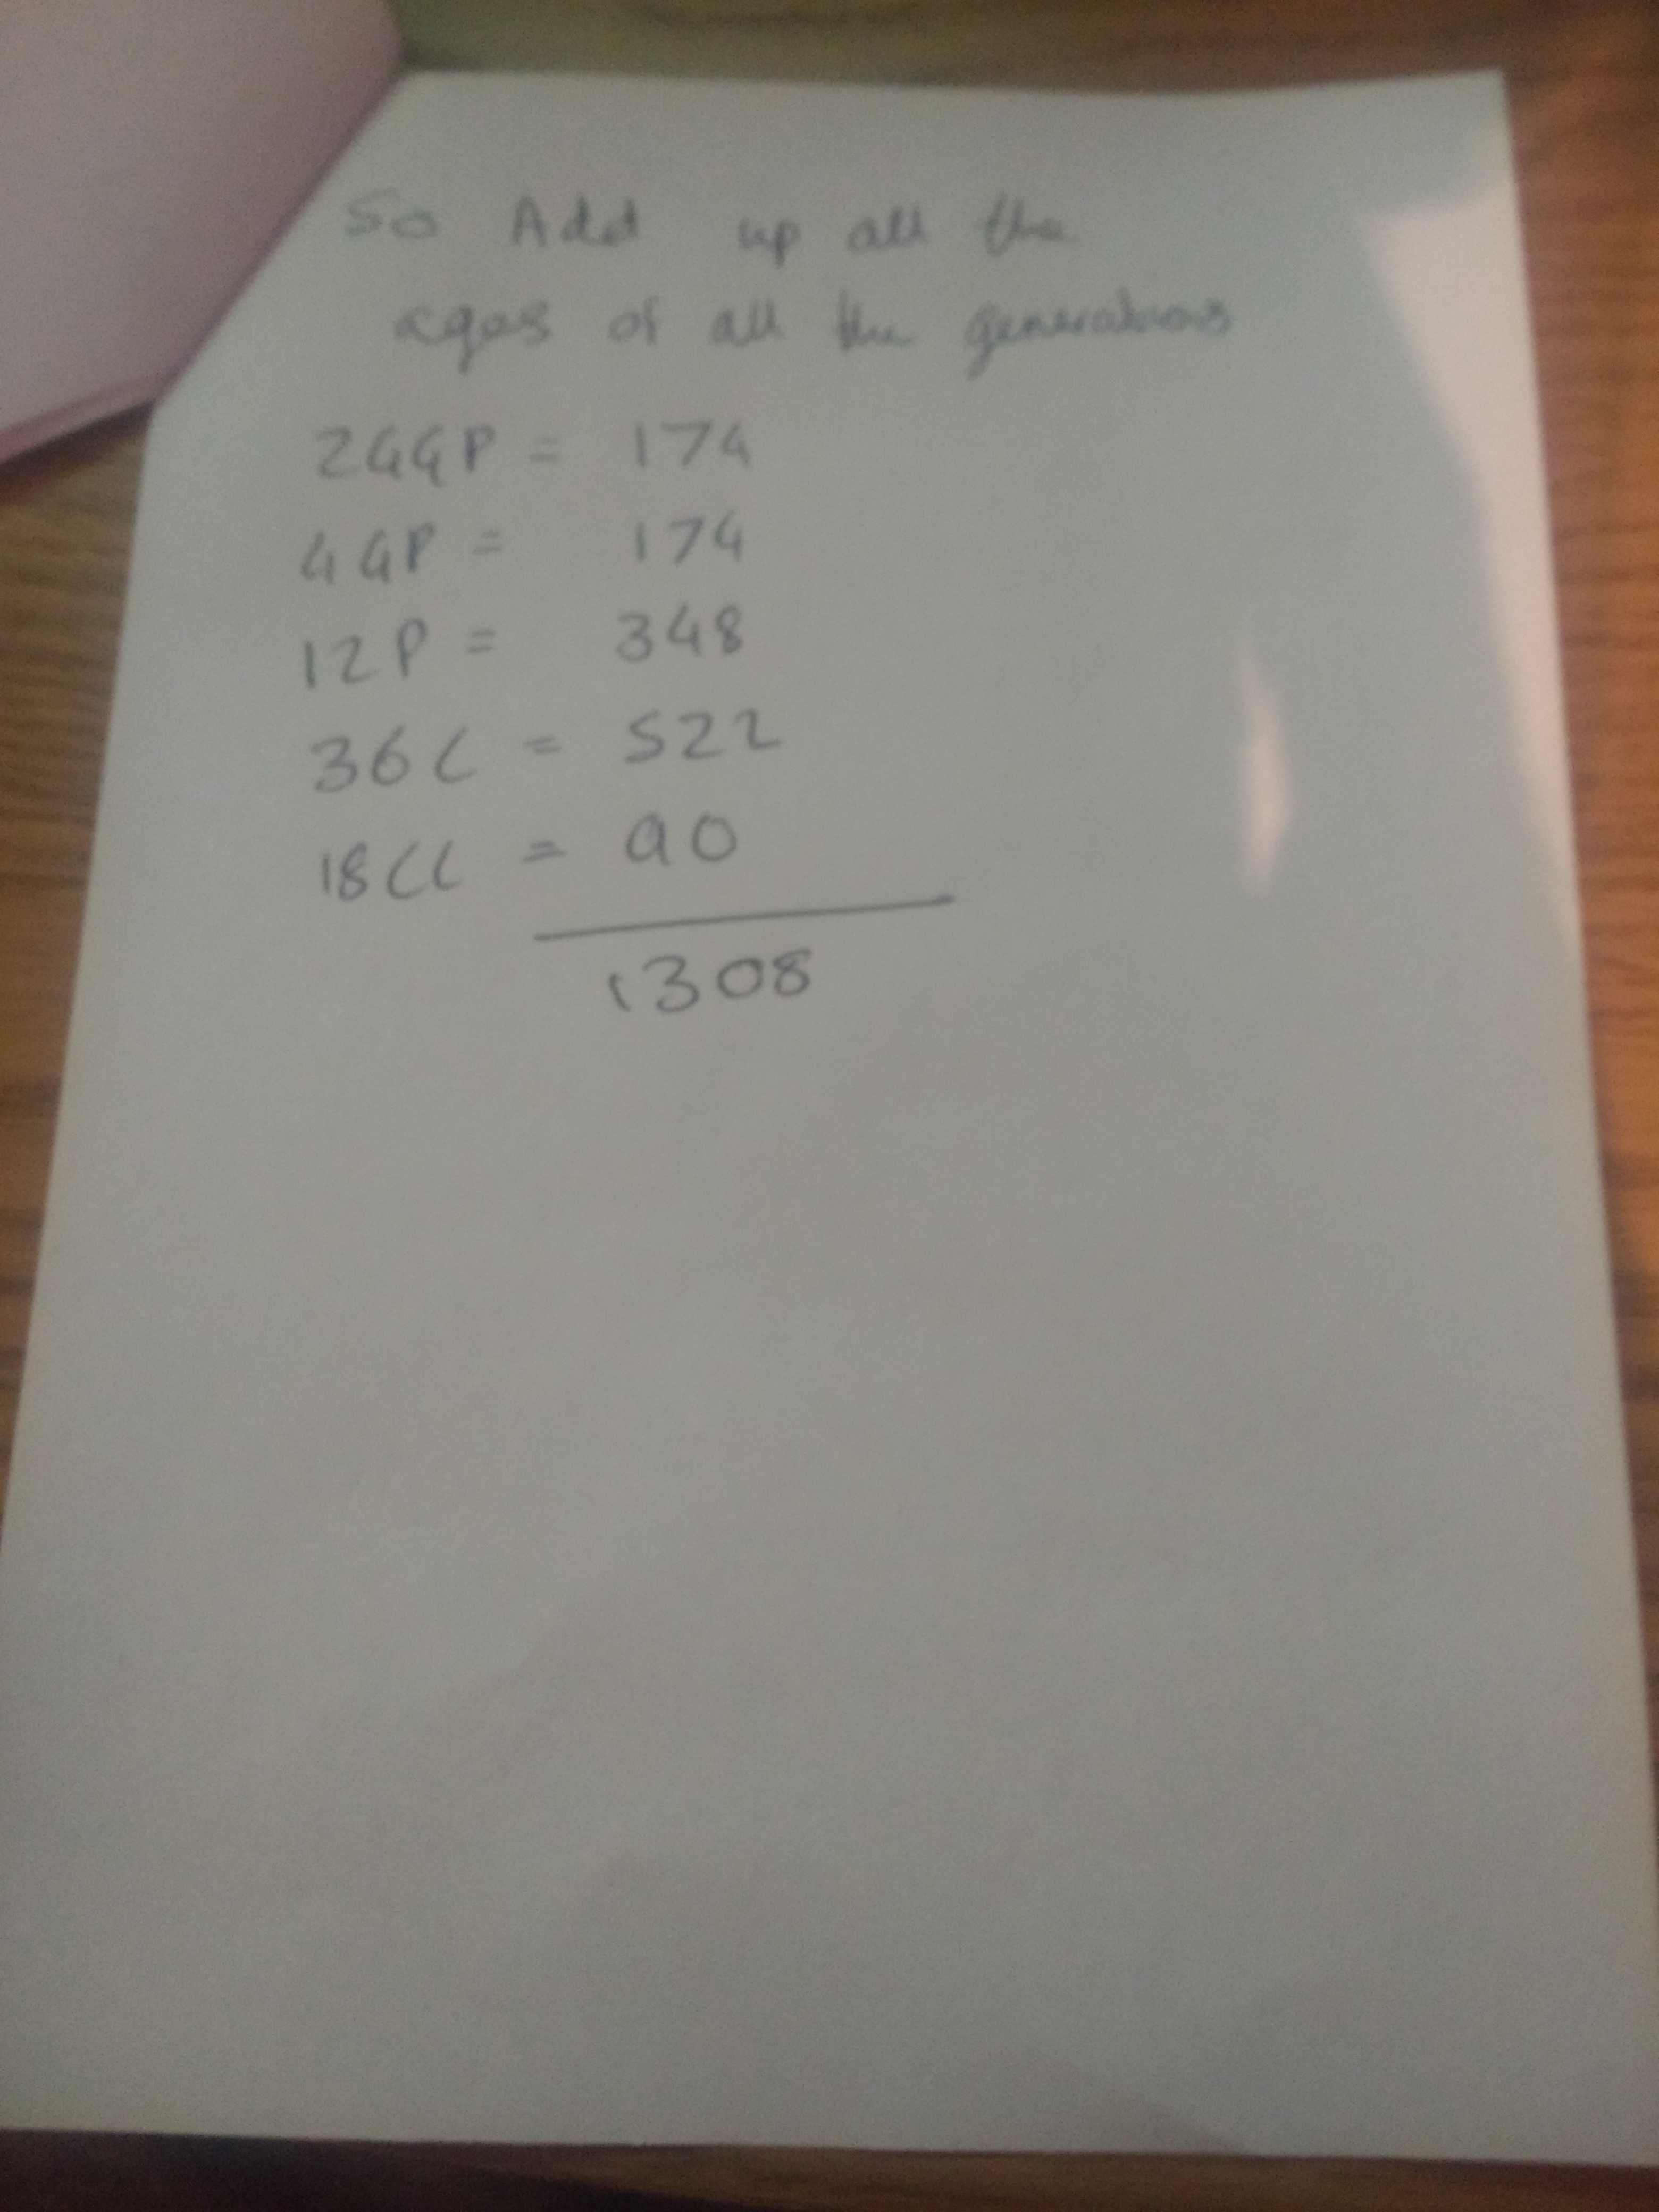 So Add up all the
ages of all the generations
2GGP = 174
4GP = 174
12P = 348
36C = 522
18CC = 90
1308